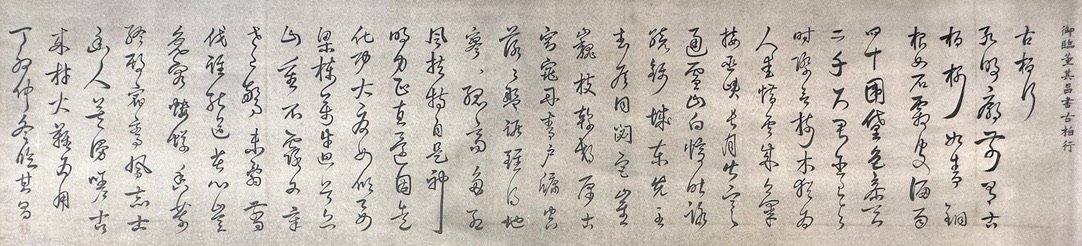 御臨董其昌書古柏行
古柏行
孔明廟前有古
柏柯如青銅
根如石霜皮溜雨
四十圍黛色參天
二千尺君臣已與
時際會樹木猶為
人愛惜雲來氣
接巫峽長月出寒
通雪山白憶昨路
繞錦城東先主
武侯同閟宮崔
嵬枝幹郊原古
窈窕丹青戶牖空
落落盤踞雖得地
冥冥孤高多烈
風扶持自是神
明力正直元因造
化功大廈如傾要
梁棟萬牛迴首丘
山重不露文章
世已驚未辭剪
伐誰能送苦心豈
免容螻蟻香葉
終經宿鸞鳳志士
幽人莫怨嗟古
來材大難為用
仲冬臨其昌